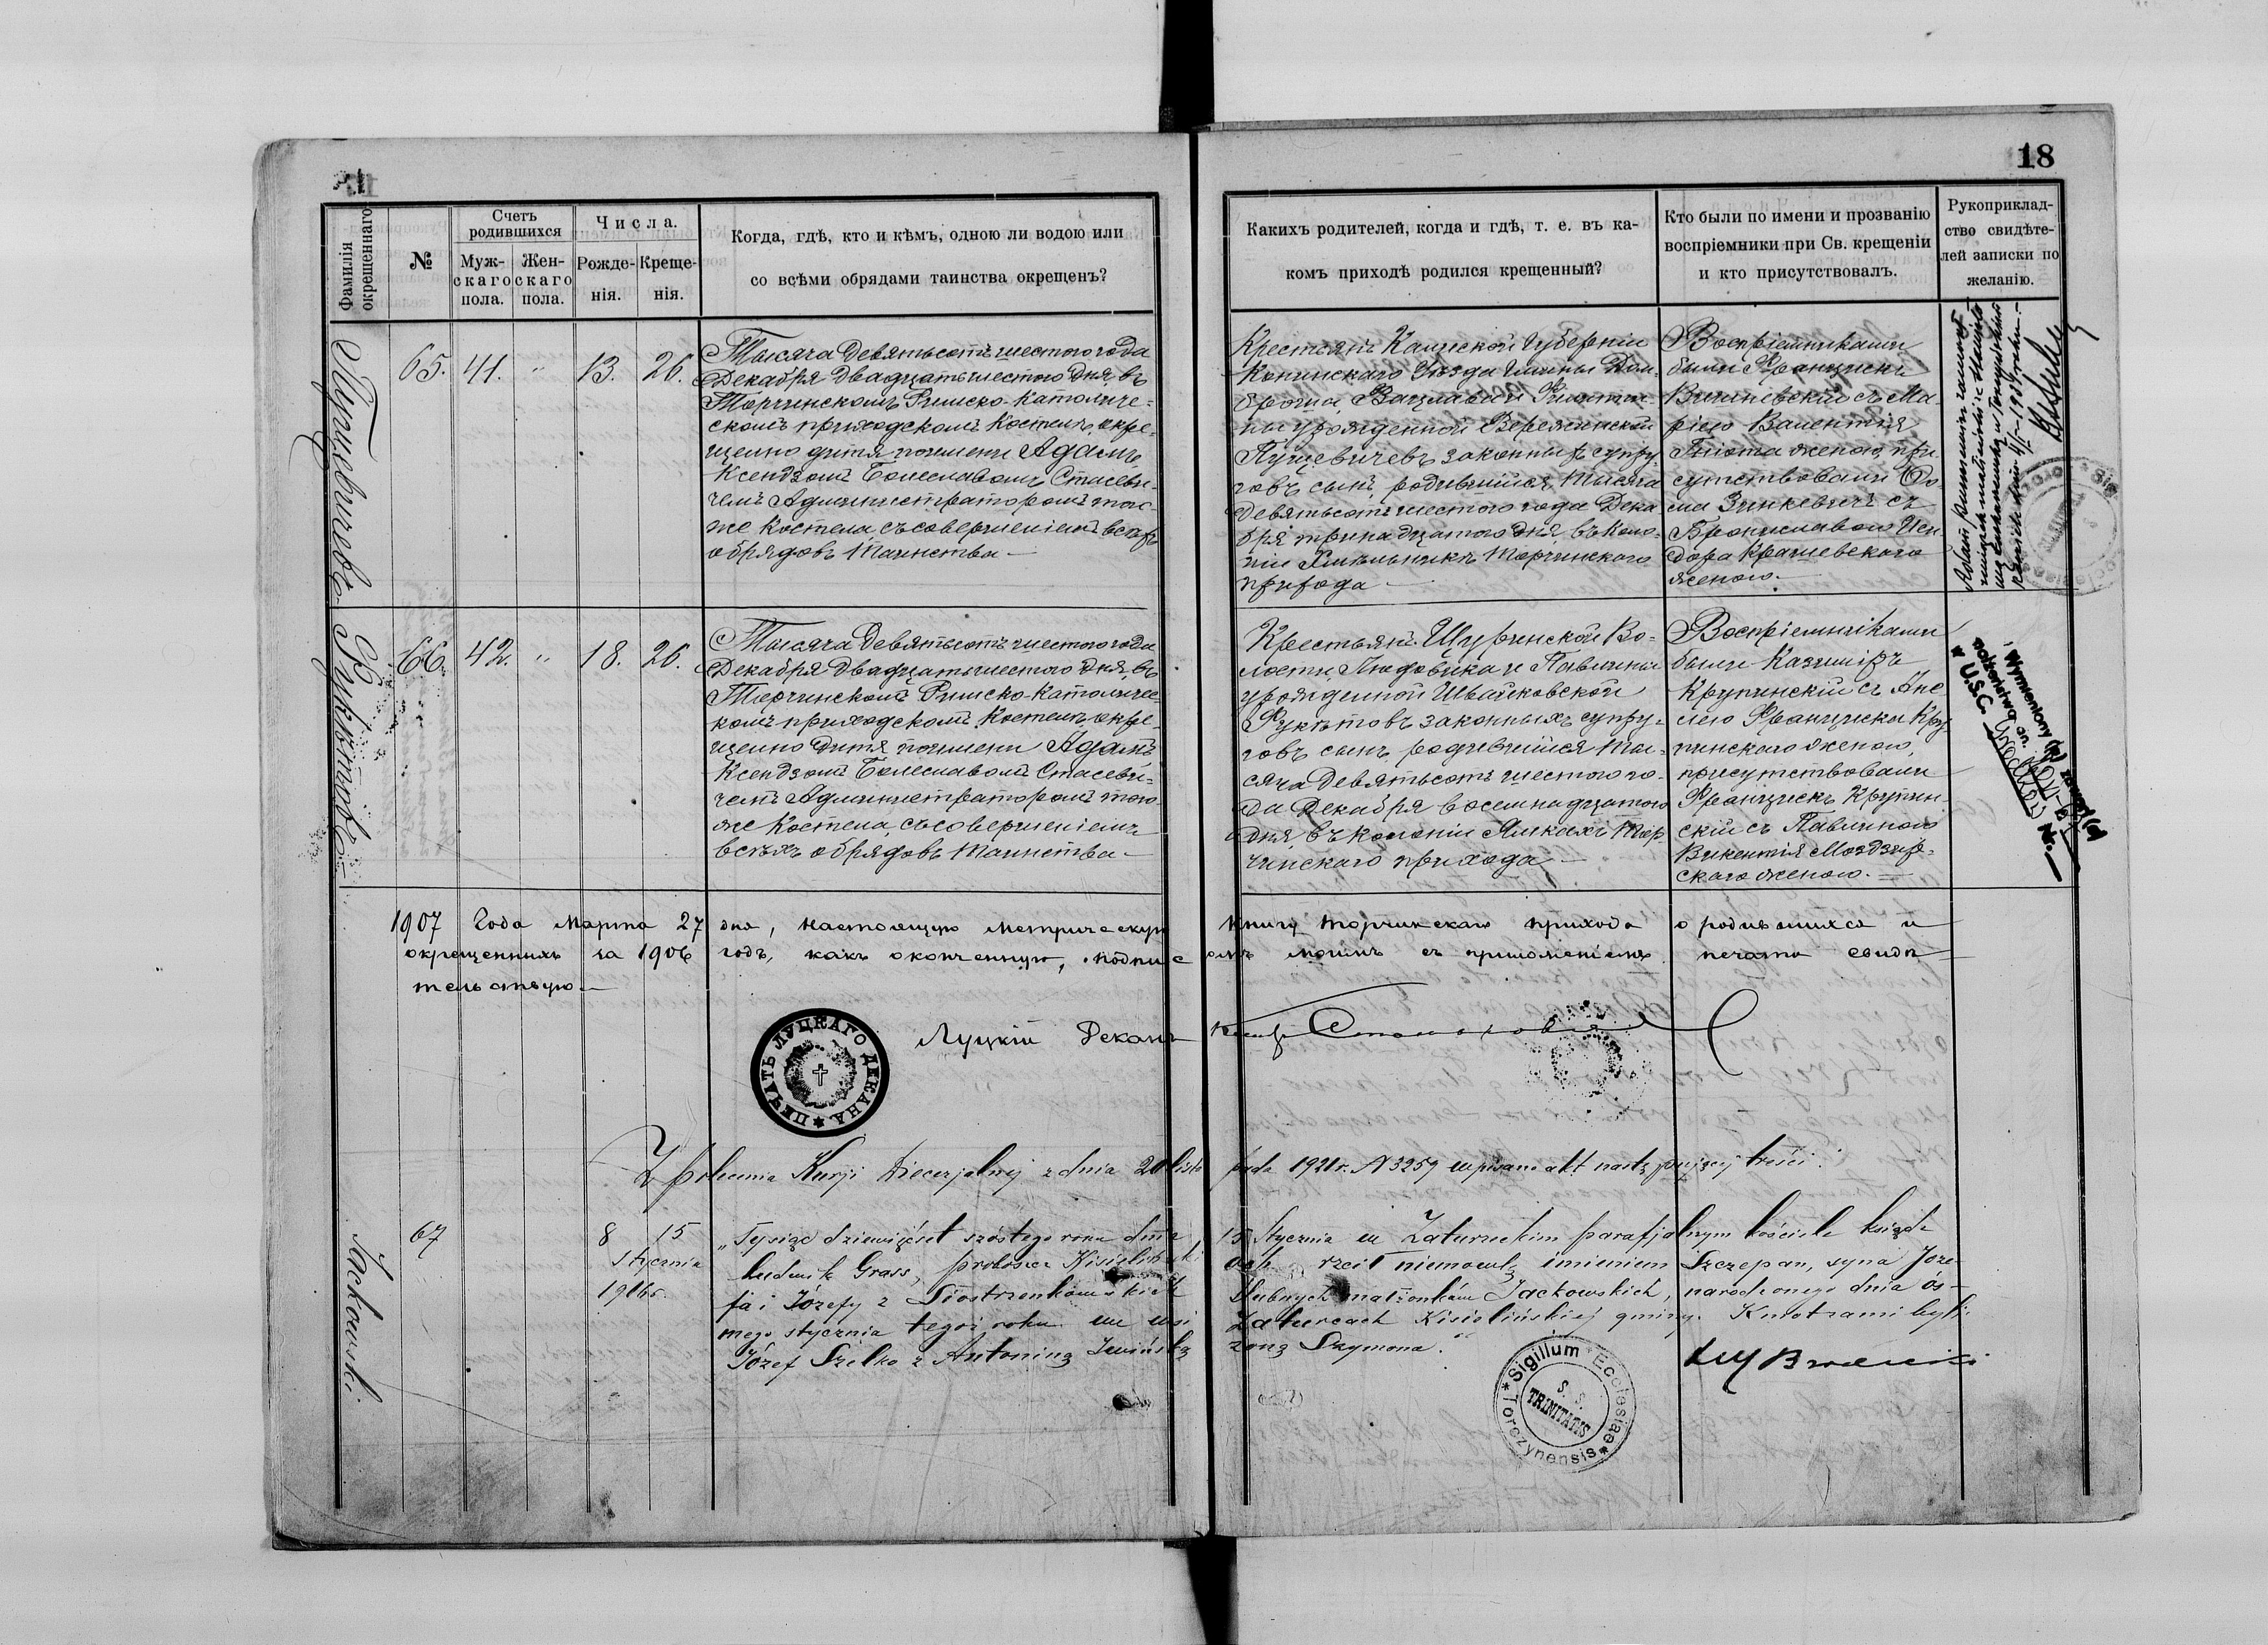 18
Фамилія окрещеннаго
№
Счетъ родившихся
Муж-
скаго
пола.
Жен-
скаго
пола.
Числа.
Рожде-
нія.
Креще-
нія.
Когда, гдѣ, кто и кѣмъ, одною ли водою или
со всѣми обрядами таинства окрещенъ?
Какихъ родителей, когда и гдѣ, т. е. въ ка-
комъ приходѣ родился крещенный?
Кто были по имени и прозванію
воспріемники при Св. крещеніи
и кто присутствовалъ.
Рукоприклад-
ство свидѣте-
лей записки по
желанію.
65. 41. " 13. 26.
Тысяча девятьсотъ шестого года
Декабря двадцать шестого дня, въ
Торчинскомъ Римско-Католиче-
скомъ приходскомъ Костелѣ, окре-
щено дитя по имени Адамъ
Ксендзомъ Болеславомъ Стасеви-
чемъ Администраторомъ того
же Костела, съ совершеніемъ всѣхъ
обрядовъ Таинства —
Крестьянъ Калишской Губерніи
Конинскаго Уѣзда Гмины
Вацлава и
урожденной
законныхъ супру-
говъ сынъ, родившійся Тысяча
девятьсотъ шестого года Дека
бря тринадцатого дня, въ Коло-
ніи Хмѣльникъ Торчинскаго
прихода —
Воспріемниками
были Францискъ
Вишнівскій съ Ма-
ріею Валентія
женою, при
сутствовали Ѳо-
ма Зинкевичъ съ
Брониславою Иси
дора Крашевскаго
женою. —
66. 42. " 18. 26.
Тысяча девятьсотъ шестого года
Декабря двадцать шестого дня, въ
Торчинскомъ Римско-Католичес-
комъ приходскомъ Костелѣ, окре-
щено дитя по имени Адамъ
Ксендзомъ Болеславомъ Стасеви-
чемъ Администраторомъ того
же Костела, съ совершеніемъ
всѣхъ обрядовъ Таинства —
Крестьянъ Щуринской Во-
лости, Людовика и Павлины
урожденной Швайковской
законныхъ супру-
говъ сынъ, родившійся Ты-
сяча девятьсотъ шестого го-
да Декабря восемнадцатого
дня, въ колоніи Тор-
чинскаго прихода —
Воспріемниками
были Казиміръ
Крупинскій съ Ане
лею Франциска Кру-
пинскаго женою,
присутствовали
Францискъ Крупин-
скій съ Павлиною
Викентія
скаго женою. —
1907 Года Марта 27 дня, настоящую метрическую книгу Торчинскаго прихода о родившихся и
окрещенныхъ за 1906 годъ, какъ оконченную, подписомъ моимъ съ приложеніемъ печати свидѣ
тельствую —
Луцкій Деканъ
ПЕЧАТЬ ЛУЦКАГО ДЕКАНА
Z polecenia Kurji Diecezjalnej z dnia 20 listopada 1921 r. N 3259 wpisano akt następującej treści:
Jackowski.
67
8 15
Stycznia
1906 r.
„Tysiąc dziewięćset szóstego roku dnia 15 Stycznia w Zatureckim parafjalnym kościele ksiądz
Ludwik Grass, proboszcz Kisieliński ochrzcił niemowlę imieniem Szczepan, syna Józe-
fa i Józefy z Siostrzenkowskich ślubnych małżonków Jackowskich, narodzonego dnia ós-
mego stycznia tegoż roku we wsi Zaturcach Kisielińskiej gminy. Kmotrami byli:
Józef Szelko z Antoniną żoną Szymona."
Sigillum Ecclesiae
S. S.
TRINITATIS
Torczynensis